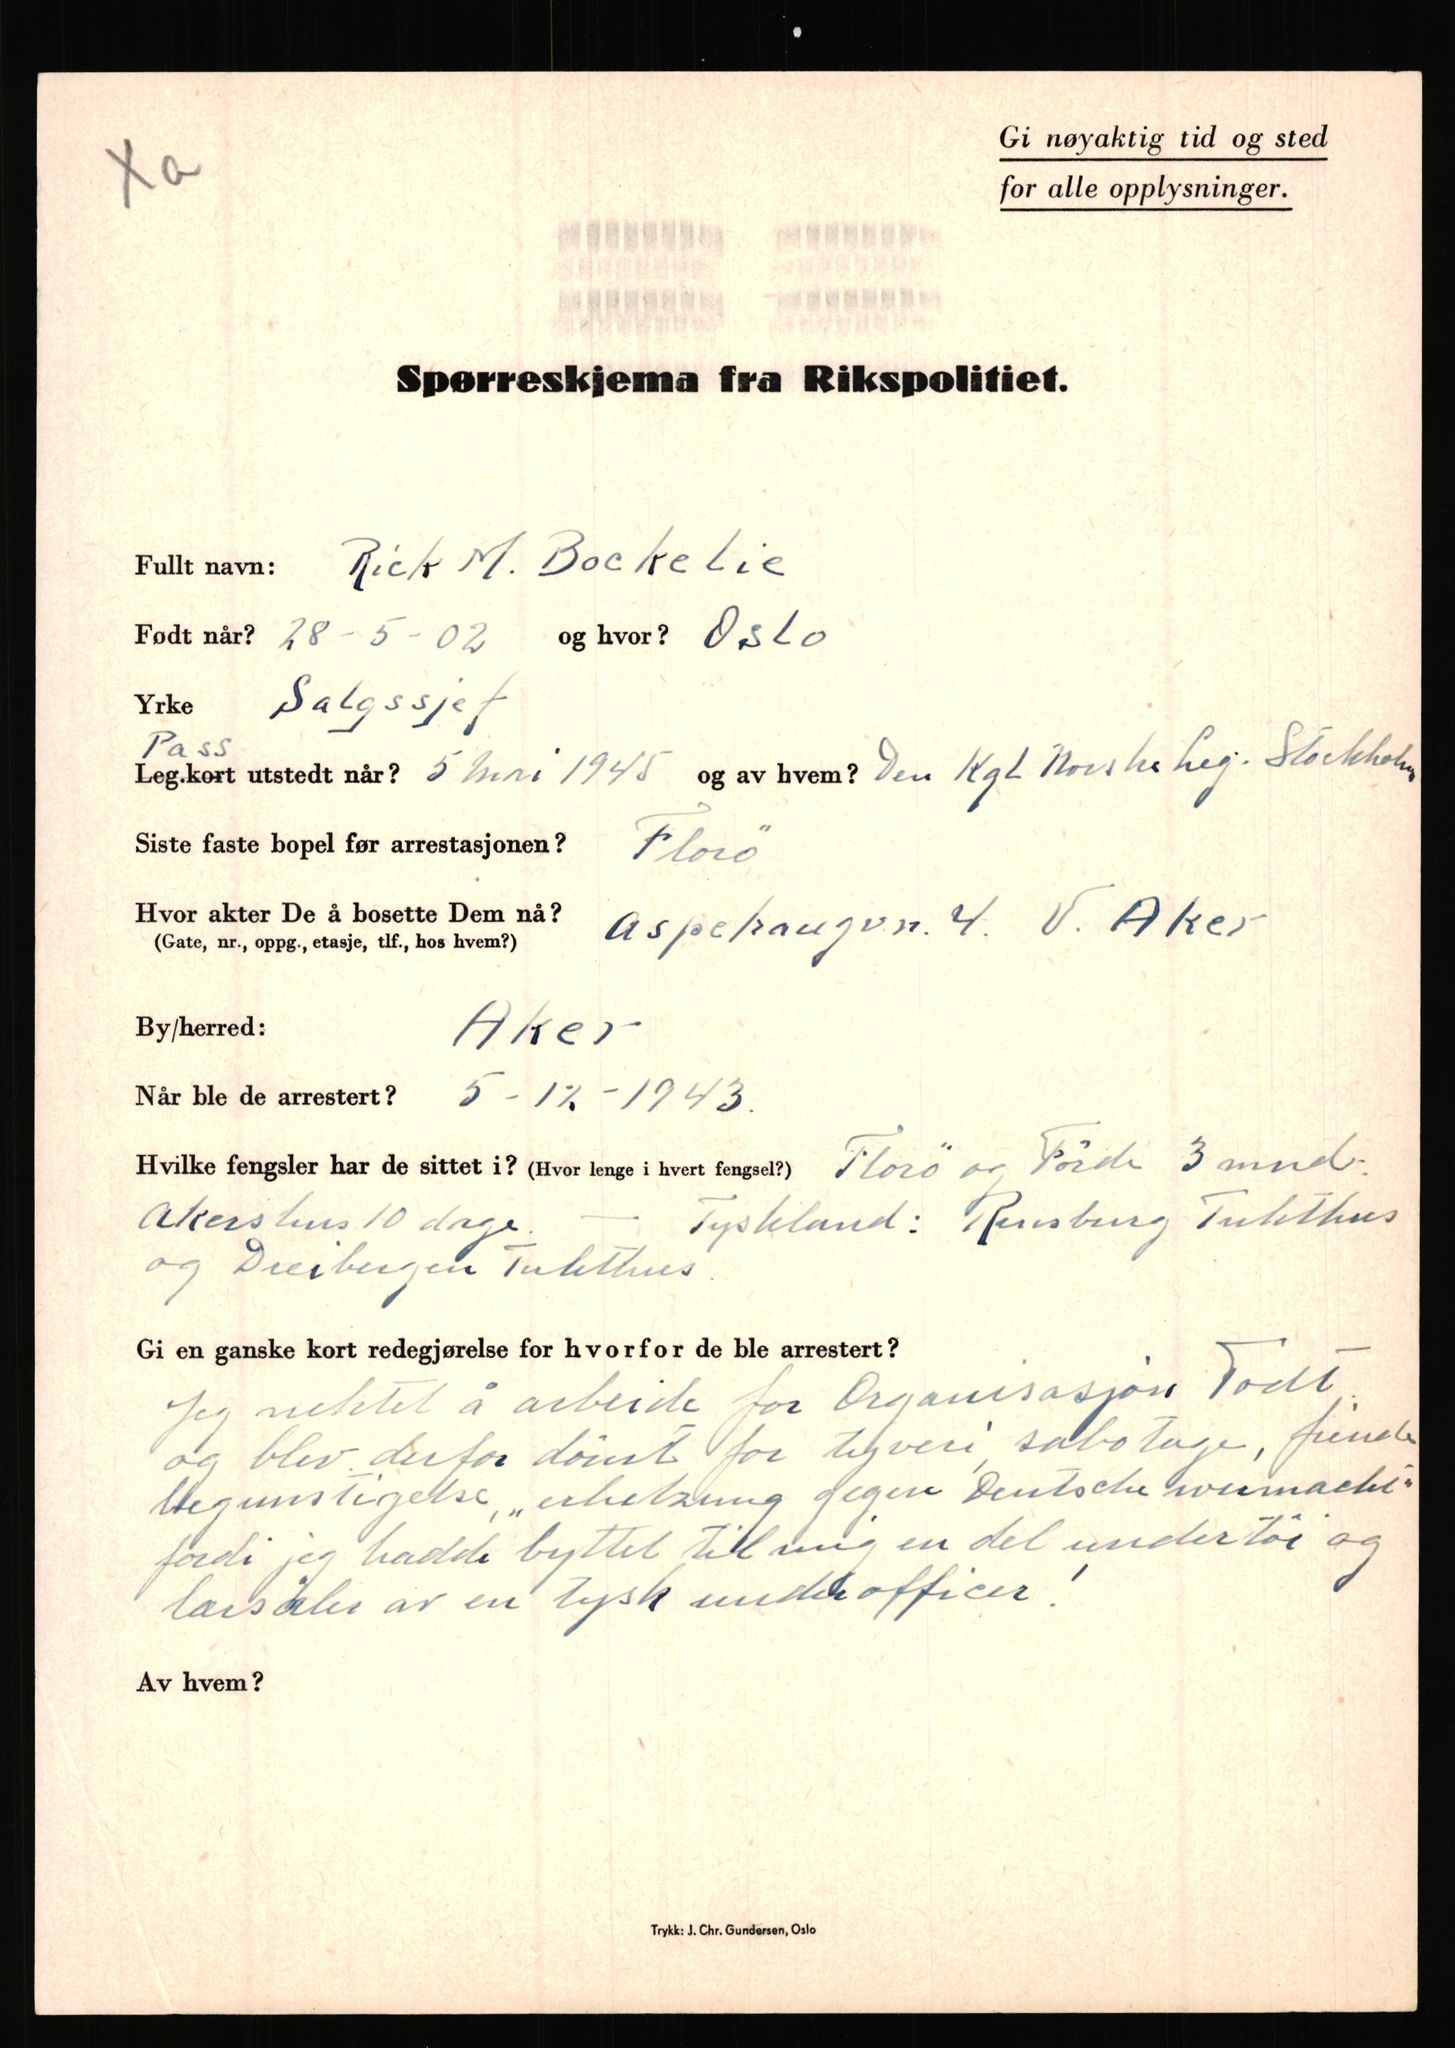 Xa
Gi nøyaktig tid og sted
for alle opplysninger.
Spørreskjema fra Rikspolitiet.
Fullt navn: Rick M. Bockelie
Født når? 28-5-02 og hvor? Oslo
Yrke Salgssjef
Pass
Leg.kort utstedt når? 5 Mai 1945 og av hvem? Den Kgl Norske Leg. Stockholm
Siste faste bopel før arrestasjonen? Florö
Hvor akter De å bosette Dem nå? Aspehaugvn. 4. V. Aker
(Gate, nr., oppg., etasje, tlf., hos hvem?)
By/herred: Aker
Når ble de arrestert? 5-12-1943.
Hvilke fengsler har de sittet i? (Hvor lenge i hvert fengsel?) Florö og Förde 3 mnd.
Akershus 10 dage. — Tyskland: Rensburg Tukthus
og Dreibergen Tukthus.
Gi en ganske kort redegjørelse for hvorfor de ble arrestert?
Jeg nektet å arbeide for Organisasjon Todt
og blev derfor dömt for tyveri, sabotage, fiende
begunstigelse, „erhetzung gegen Deutsche wermacht"
fordi jeg hadde byttet til mig en del undertöi og
lærsåler av en tysk underofficer!
Av hvem?
Trykk: J. Chr. Gundersen, Oslo